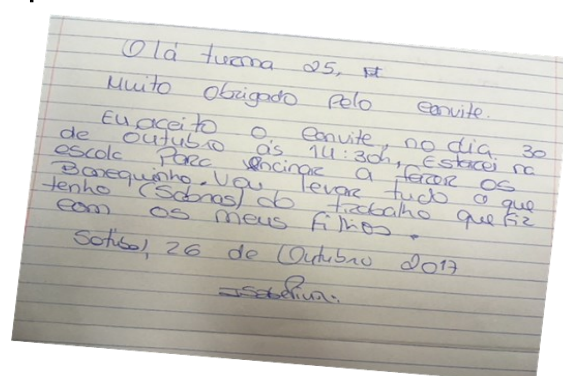 Olá turma 25,
Muito obrigado pelo convite.
Eu aceito o convite, no dia 30
de outubro ás 14:30h, Estarei na
escola para encinar a fazer os
Bonequinho. Vou levar tudo o que
tenho (Sobras) do trabalho que fiz
com os meus filhos.
Setubal, 26 de Outubro 2017